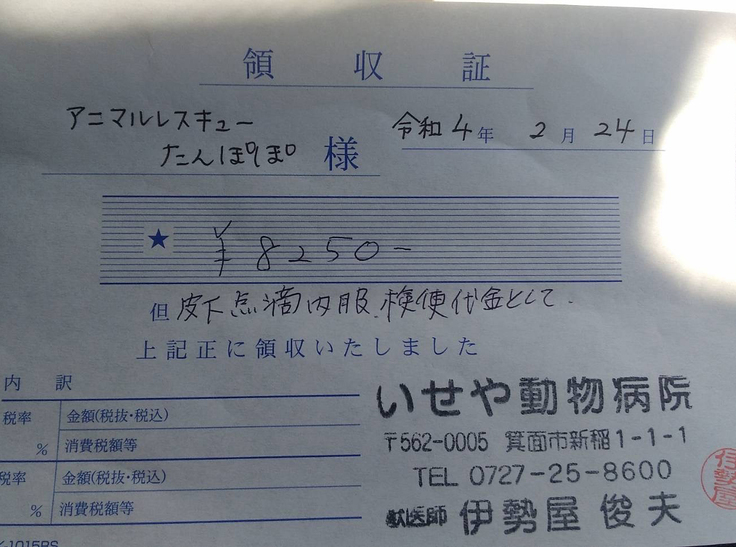 領収証
アニマルレスキュー
たんぽぽ 様
令和4年 2月 24日
★ ¥8250-
但 皮下点滴内服、検便代金として.
上記正に領収いたしました
内訳
税率 金額(税抜・税込)
% 消費税額等
税率 金額(税抜・税込)
% 消費税額等
いせや動物病院
〒562-0005 箕面市新稲1-1-1
TEL 0727-25-8600
獣医師 伊勢屋 俊夫
伊勢屋